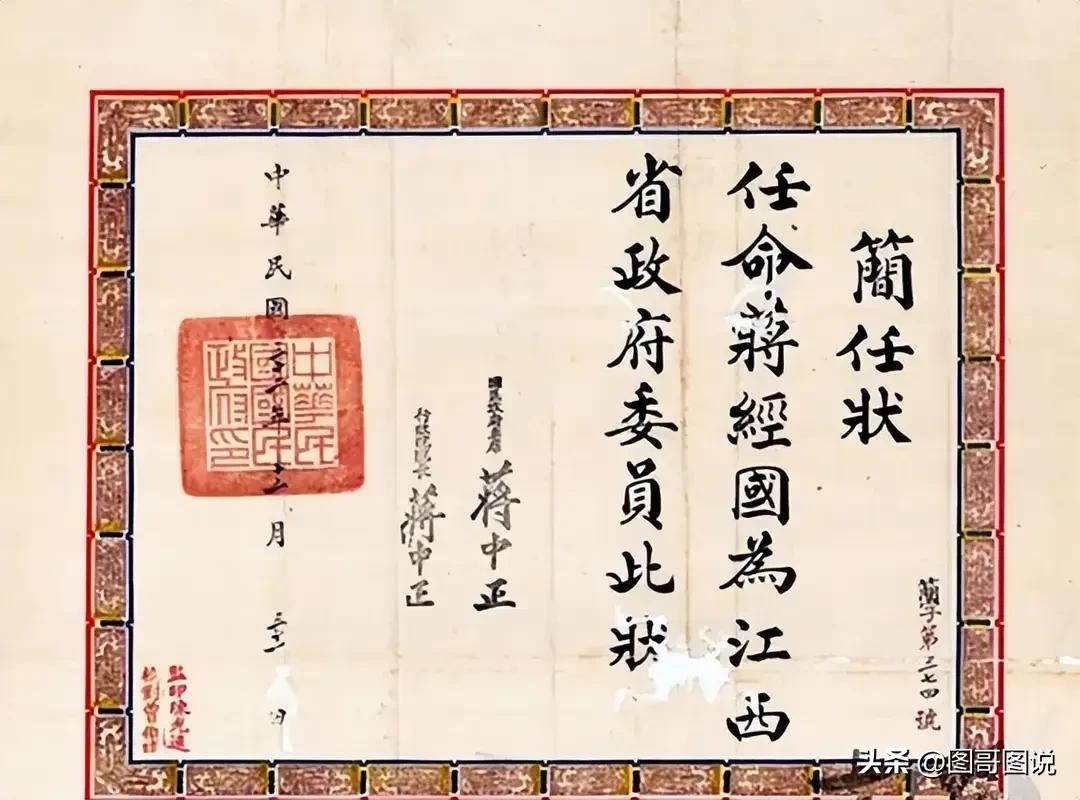 簡任狀
任命蔣經國為江西
省政府委員此狀
簡字第三七四號
國民政府主席 蔣中正
行政院院長 蔣中正
中華民國三十二年十二月 日
中華民國國民政府印
監印陳光遠
校對曾
头条 @图哥图说